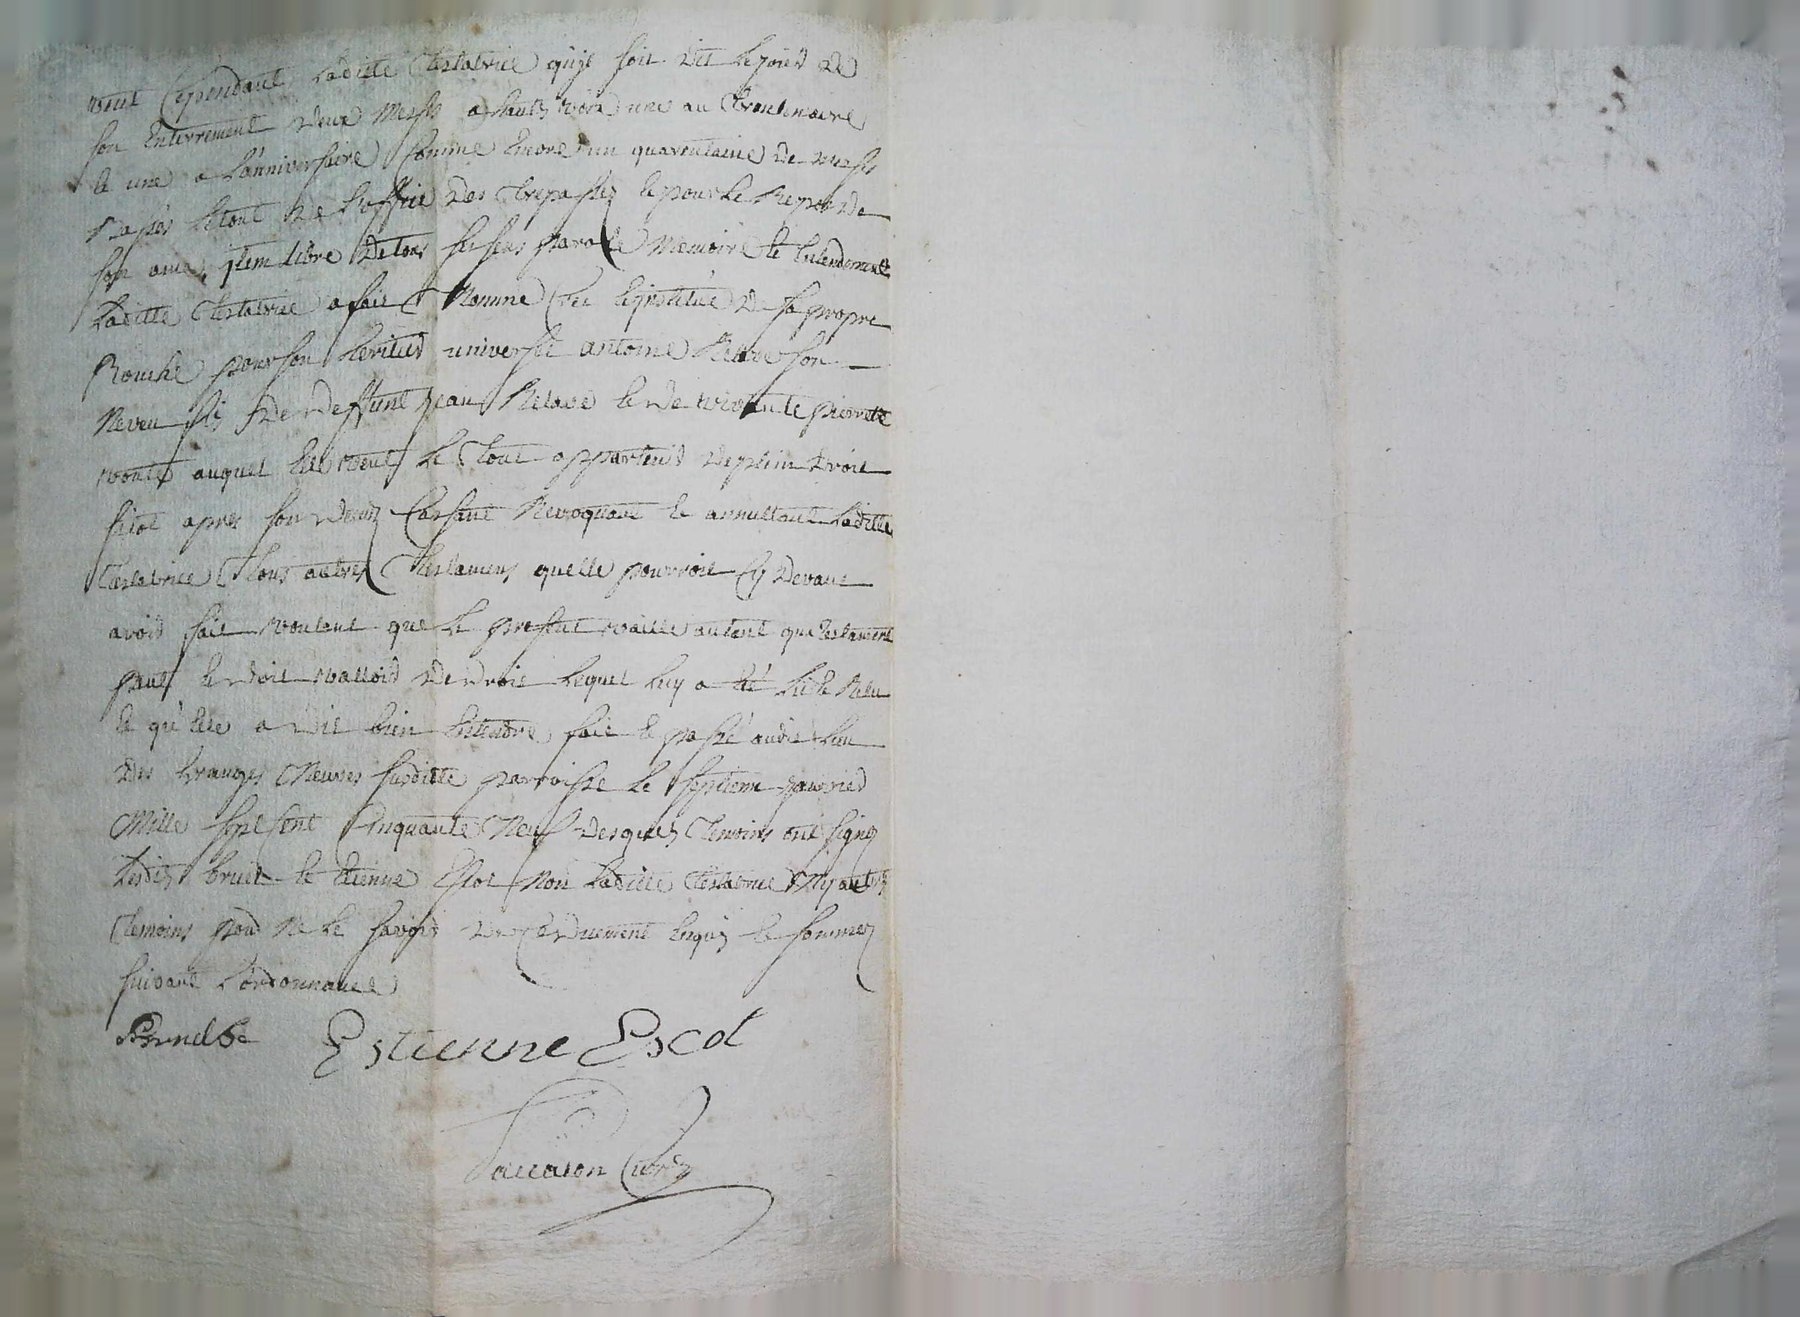 veut Cependant laditte testatrice quijl soit dit le jour de
son Enterrement deux Messes a hautes voix une au trentenaire
et une a l'anniversaire Comme Encore un quarentaine de Messes
basses le tout de l'office des trepassez et pour le Repos de
son ame, jtem libre de tous ses sens parolle Memoire et Entendement
laditte testatrice a fait Nomme et jnstitue de sa propre
Bouche pour son heritier universel antoine Relave son
Neveu fils de deffunt jean Relave et de vivante pierrette
auquel Elle veut le tout appartenir de plein droit
sitot apres son decez Cassant Revoquant et annullant laditte
testatrice tous autres testamens quelle pourroit Cy devant
avoir fait voulant que le present vaille autant que testament
peut et doit valloir de droit lequel luy a été lu et Relu
et qu'elle a dit bien Entendre, fait et passé audit lieu
des Granges Neuves susditte parroisse le septieme janvier
Mille sept Cent Cinquante Neuf desquels temoins ont signez
lesdits bruel et Etienne Escot Non laditte testatrice Ny autres
temoins pour Ne le savoir de Ce duement Enquis et sommez
suivant l'ordonnance
Estienne Escot
Curé